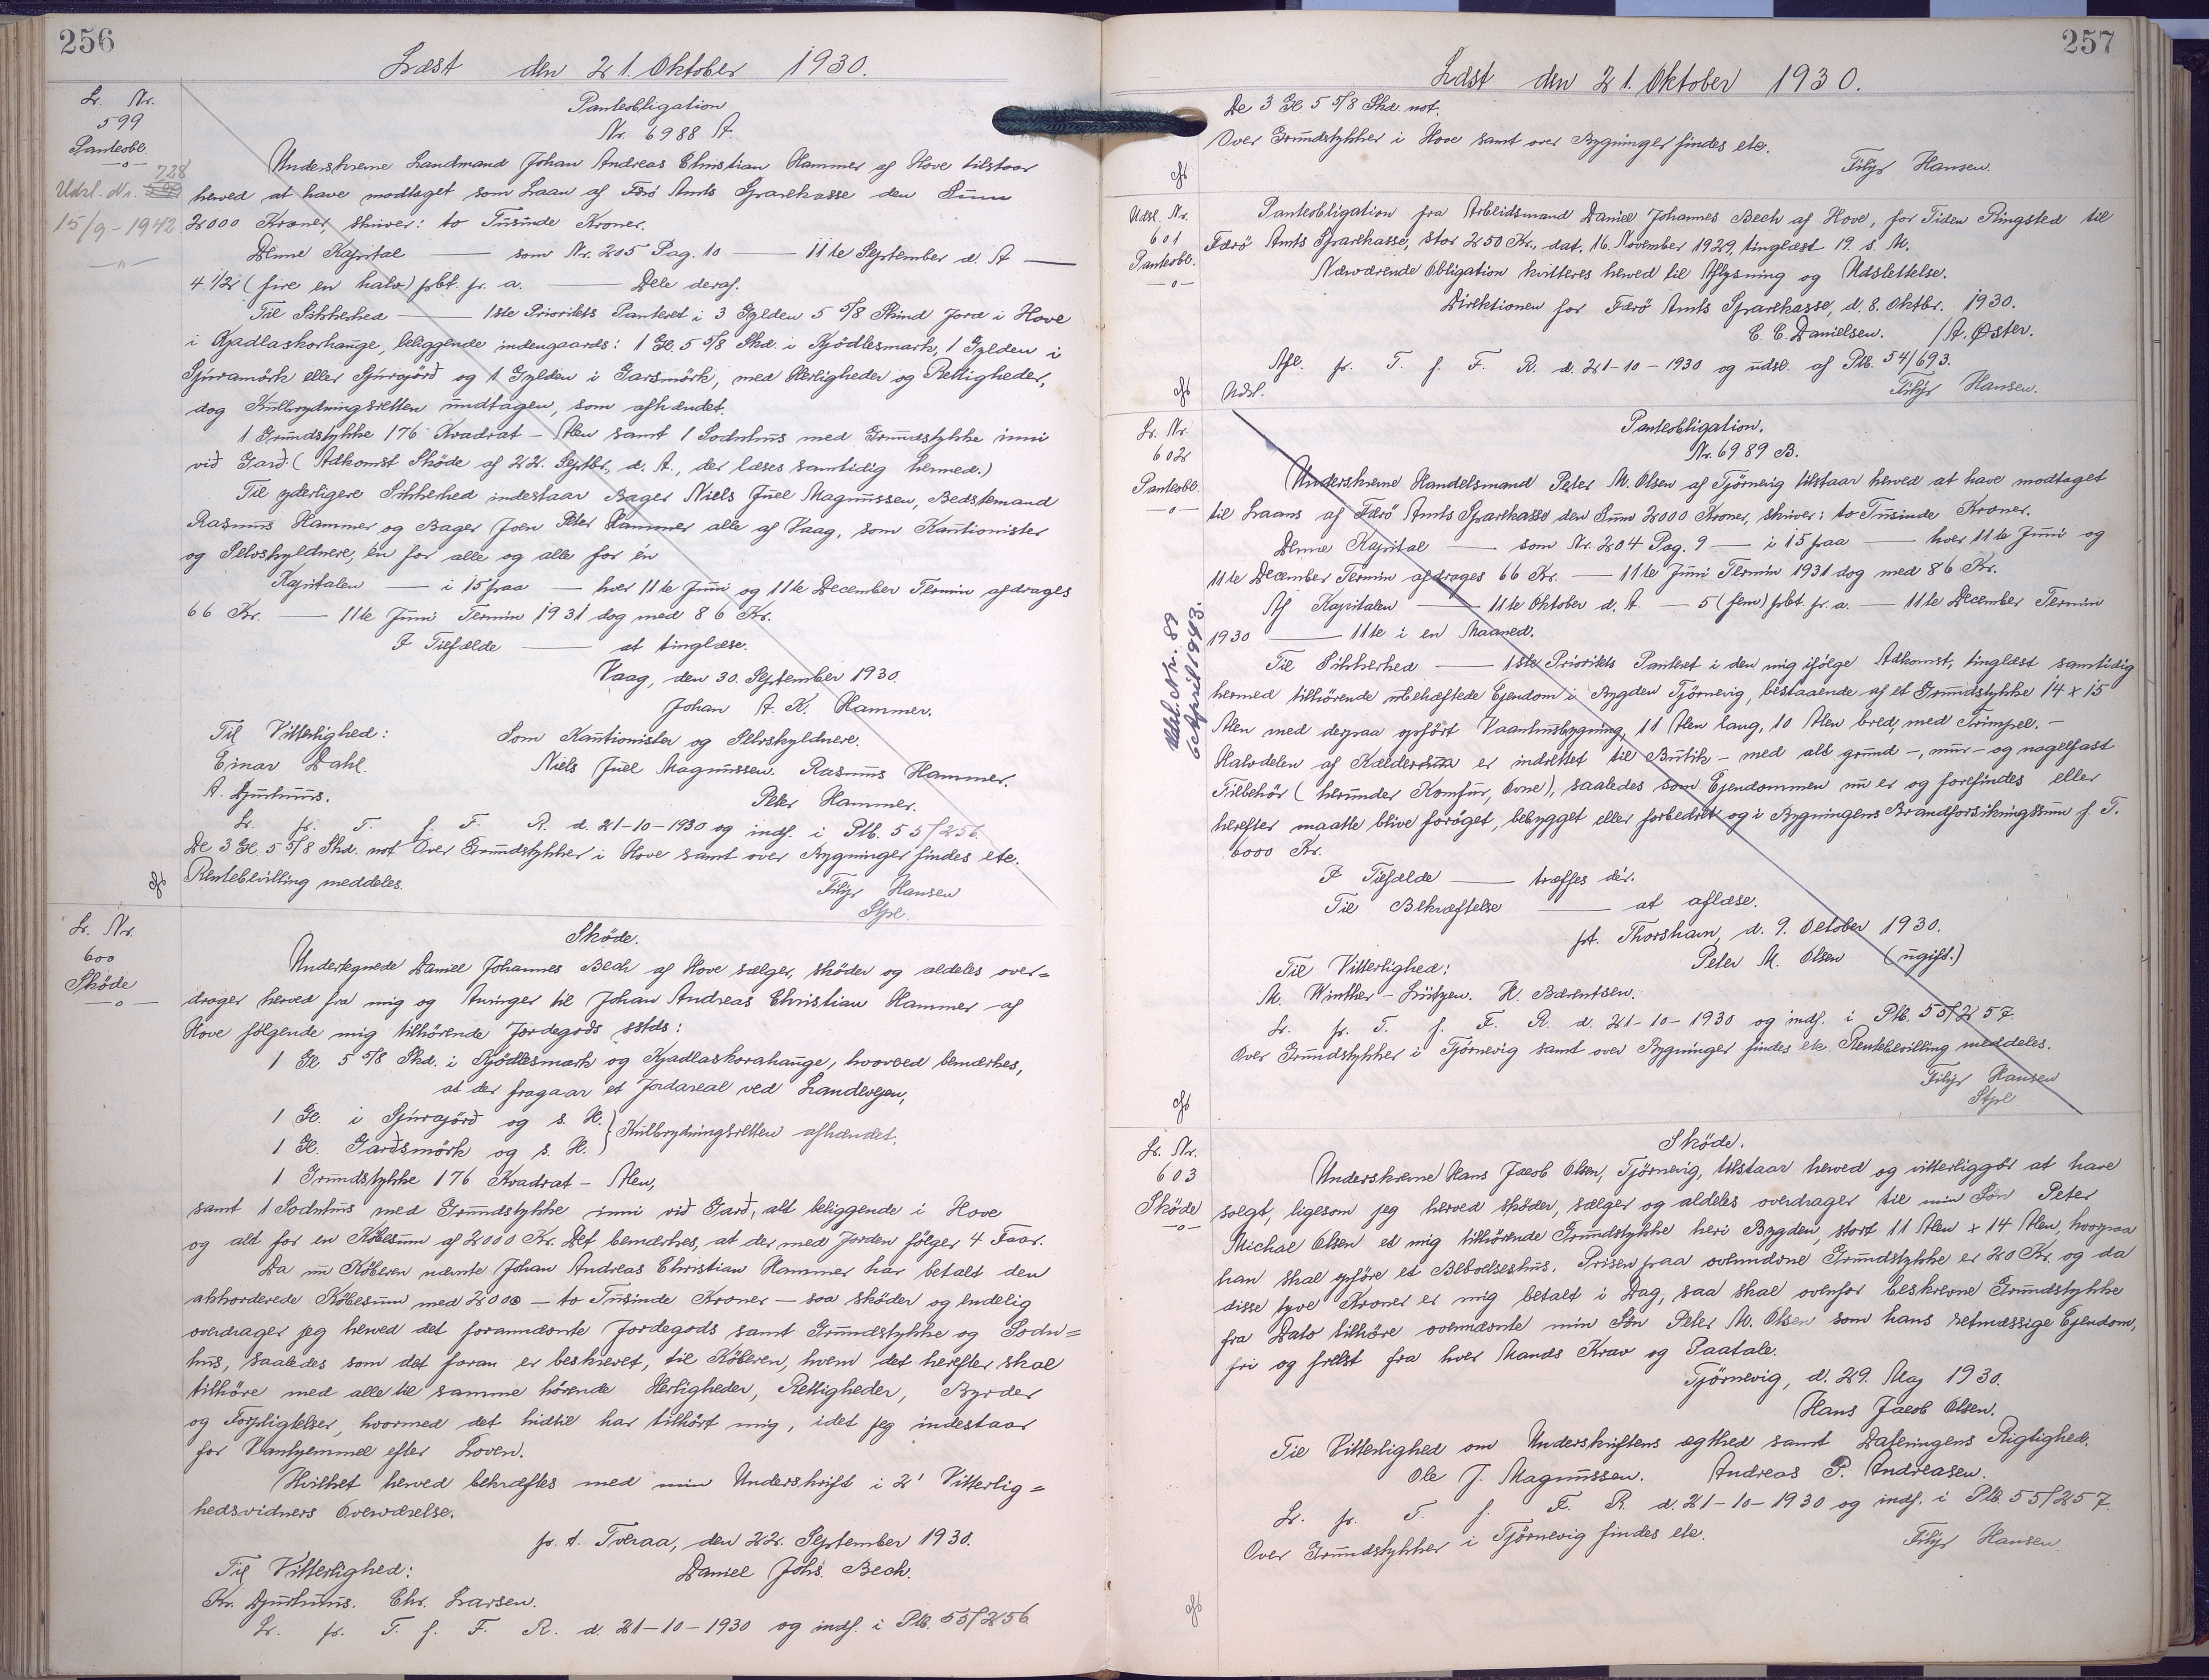 256
Læst den 21. Oktober 1930.
Lr. Nr.
599
Panteobl.
Udsl. Nr. 728
15/9-1942
Panteobligation
Nr. 6988 A.
Underskrevne Landmand Johan Andreas Christian Hammer af Hove tilstaar
herved at have modtaget som Laan af Færö Amts Sparekasse den Sum
2000 Kroner, skriver: to Tusinde Kroner.
Denne Kapital — som Nr. 205 Pag. 10 — 11te September d. A —
4 1/2 (fire en halv) pbt. pr. a. — Dele deraf.
Til Sikkerhed — 1ste Prioritets Panteret i 3 Gylden 5 5/8 Skind Jord i Hove
i Kjadlaskorhauge, beliggende indengaards: 1 Gl. 5 5/8 Skd. i Kjödlesmark, 1 Gylden i
Sjúramörk eller Sjúrajörð og 1 Gylden i Garsmörk, med Herligheder og Rettigheder,
dog Kulbrydningsretten undtagen, som afhændet.
1 Grundstykke 176 Kvadrat-Alen samt 1 Sodnhus med Grundstykke inni
við Garð. (Adkomst Sköde af 22. Septbr. d. A., der læses samtidig hermed.)
Til yderligere Sikkerhed indestaar Bager Niels Juel Magnussen, Bedstemand
Rasmus Hammer og Bager Joen Peter Hammer alle af Vaag, som Kautionister
og Selvskyldnere, én for alle og alle for én
Kapitalen — i 15 paa — hver 11te Juni og 11te December Termin afdrages
66 Kr. — 11te Juni Termin 1931 dog med 86 Kr.
I Tilfælde — at tinglæse.
Vaag, den 30. September 1930.
Johan A. K. Hammer.
Til Vitterlighed: Som Kautionister og Selvskyldnere.
Einar Dahl. Niels Juel Magnussen. Rasmus Hammer.
A. Djurhuus. Peter Hammer.
Lr. pr. T. f. F. R. d. 21-10-1930 og indf. i Ptb. 55/256.
De 3 Gl. 5 5/8 Skd. not. Over Grundstykker i Hove samt over Bygninger findes etc.
Rentebevilling meddeles. Filip Hansen
Stpl.
Lr. Nr.
600
Sköde
Sköde.
Undertegnede Daniel Johannes Bech af Hove sælger, sköder og aldeles over=
drager herved fra mig og Arvinger til Johan Andreas Christian Hammer af
Hove følgende mig tilhörende Jordegods sstds:
1 Gl. 5 5/8 Skd. i Kjödlesmark og Kjadlaskorahauge, hvorved bemærkes,
at der fragaar et Jordareal ved Landevejen,
1 Gl. i Sjúrajörð og s. H. } Kulbrydningsretten afhændet.
1 Gl. Garðsmörk og s. H.
1 Grundstykke 176 Kvadrat-Alen,
samt 1 Sodnhus med Grundstykke inni við Garð, alt beliggende i Hove
og alt for en Købesum af 2000 Kr. Det bemærkes, at der med Jorden følger 4 Faar.
Da nu Köberen nævnte Johan Andreas Christian Hammer har betalt den
akkorderede Købesum med 2000 — to Tusinde Kroner — saa sköder og endelig
overdrager jeg herved det forannævnte Jordegods samt Grundstykke og Sodn=
hus, saaledes som det foran er beskrevet, til Köberen, hvem det herefter skal
tilhöre med alle til samme hörende Herligheder, Rettigheder, Byrder
og Forpligtelser, hvormed det hidtil har tilhört mig, idet jeg indestaar
for Vanhjemmel efter Loven.
Hvilket herved bekræftes med min Underskrift i 2' Vitterlig=
hedsvidners Overværelse.
p. t. Tveraa, den 22. September 1930.
Til Vitterlighed: Daniel Johs. Bech.
Kr. Djurhuus. Chr. Larsen.
Lr. pr. T. f. F. R. d. 21-10-1930 og indf. i Ptb. 55/256
257
Læst den 21. Oktober 1930.
De 3 Gl. 5 5/8 Skd. not.
Over Grundstykker i Hove samt over Bygninger findes etc.
Filip Hansen.
Udsl. Nr.
601
Panteobl.
Panteobligation fra Arbeidsmand Daniel Johannes Bech af Hove, for Tiden Ringsted til
Færö Amts Sparekasse, stor 250 Kr., dat. 16. November 1929, tinglæst 19. s. M.
Nærværende Obligation kvitteres herved til Aflysning og Udslettelse.
Direktionen for Færö Amts Sparekasse, d. 8. Oktbr. 1930.
C. C. Danielsen. /A. Øster.
Afl. pr. T. f. F. R. d. 21-10-1930 og udsl. af Ptb. 54/693.
Udsl. Filip Hansen.
Lr. Nr.
602
Panteobl.
Udsl. Nr. 89
6 April 1943.
Panteobligation.
Nr. 6989 B.
Underskrevne Handelsmand Peter M. Olsen af Tjörnevig tilstaar herved at have modtaget
til Laans af Færö Amts Sparekasse den Sum 2000 Kroner, skriver: to Tusinde Kroner.
Denne Kapital — som Nr. 204 Pag. 9 — i 15 paa — hver 11te Juni og
11te December Termin afdrages 66 Kr. — 11te Juni Termin 1931 dog med 86 Kr.
Af Kapitalen — 11te Oktober d. A. — 5 (fem) pbt. pr. a. — 11te December Termin
1930 — 11te i en Maaned.
Til Sikkerhed — 1ste Prioritets Panteret i den mig ifölge Adkomst, tinglæst samtidig
hermed tilhörende ubehæftede Ejendom i Bygden Tjörnevig, bestaaende af et Grundstykke 14 x 15
Alen med derpaa opfört Vaanhusbygning, 11 Alen lang, 10 Alen bred, med Trimpel. —
Halvdelen af Kælderen er indrettet til Butik — med alt grund-, mur- og nagelfast
Tilbehör (herunder Komfur, Ovne), saaledes som Ejendommen nu er og forefindes eller
herefter maatte blive foröget, bebygget eller forbedret og i Bygningens Brandforsikringssum f. T.
6000 Kr.
I Tilfælde — træffes dér.
Til Bekræftelse — at aflæse.
pt. Thorshavn, d. 9. October 1930.
Til Vitterlighed: Peter M. Olsen (ugift.)
M. Winther-Lützen. H. Bærentsen.
Lr. pr. T. f. F. R. d. 21-10-1930 og indf. i Ptb. 55/257
Over Grundstykker i Tjörnevig samt over Bygninger findes etc. Rentebevilling meddeles.
Filip Hansen
Stpl
Lr. Nr.
603
Sköde
Sköde.
Underskrevne Hans Jacob Olsen, Tjörnevig, tilstaar herved og vitterliggör at have
solgt, ligesom jeg herved sköder, sælger og aldeles overdrager til min Sön Peter
Michal Olsen et mig tilhörende Grundstykke heri Bygden, stort 11 Alen x 14 Alen, hvorpaa
han skal opföre et Beboelseshus. Prisen paa ovennævnte Grundstykke er 20 Kr. og da
disse tyve Kroner er mig betalt i Dag, saa skal ovenfor beskrevne Grundstykke
fra Dato tilhöre ovennævnte min Sön Peter M. Olsen som hans retmæssige Ejendom,
fri og frelst fra hver Mands Krav og Paatale.
Tjörnevig, d. 29. Maj 1930.
Hans Jacob Olsen.
Til Vitterlighed om Underskriftens ægthed samt Dateringens Rigtighed.
Ole J. Magnussen. Andreas P. Andreasen.
Lr. pr. T. f. F. R. d. 21-10-1930 og indf. i Ptb. 55/257.
Over Grundstykker i Tjörnevig findes etc. Filip Hansen.